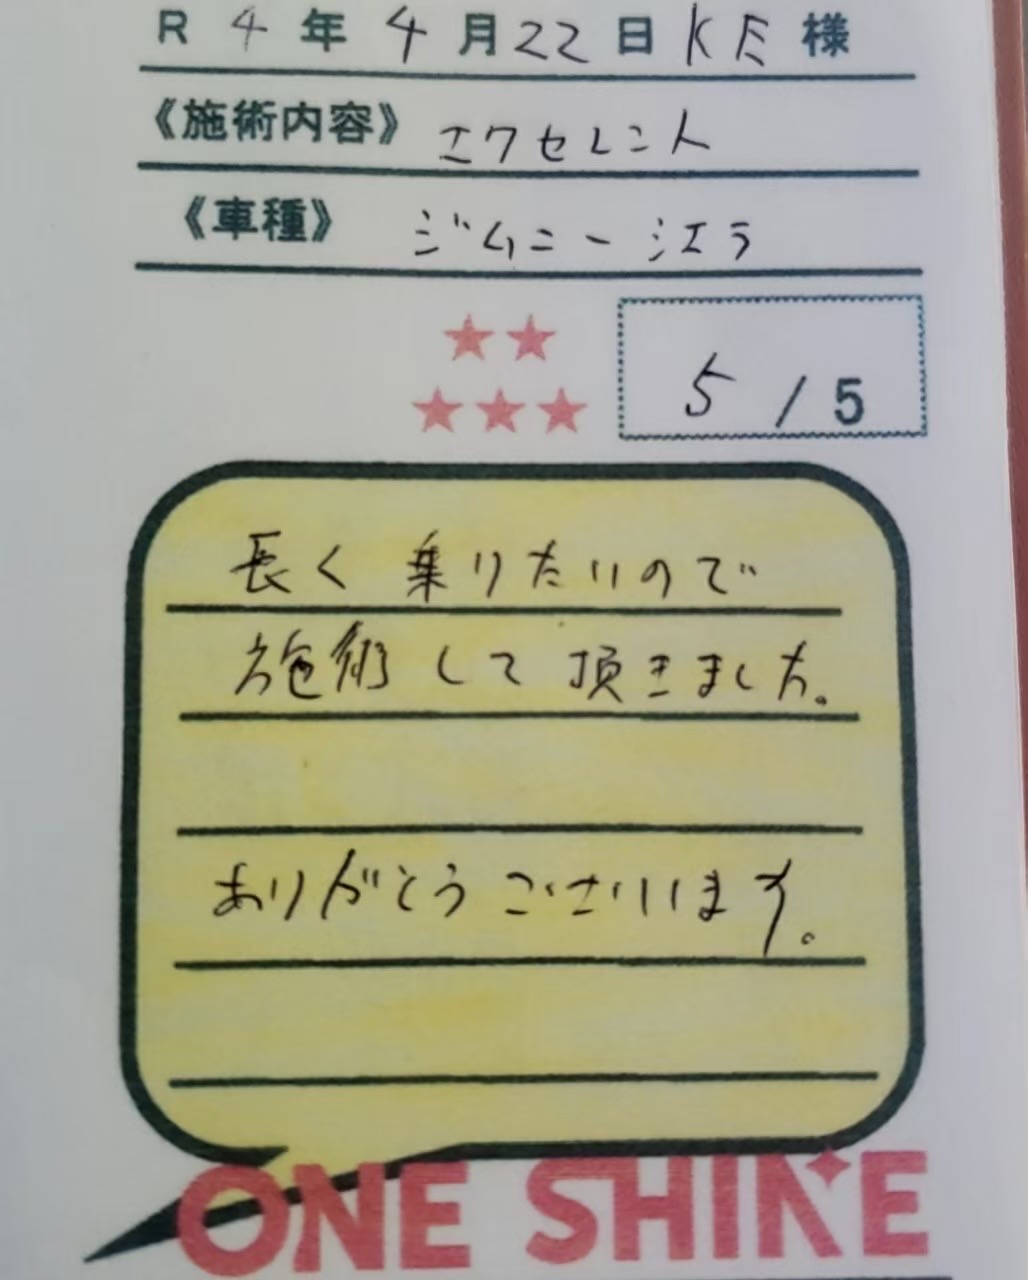 R 4 年 4 月 22 日 KE 様
《施術内容》 エクセレント
《車種》 ジムニーシエラ
★★
★★★ 5 / 5
長く乗りたいので
施術して頂きました。
ありがとうございます。
ONE SHINE